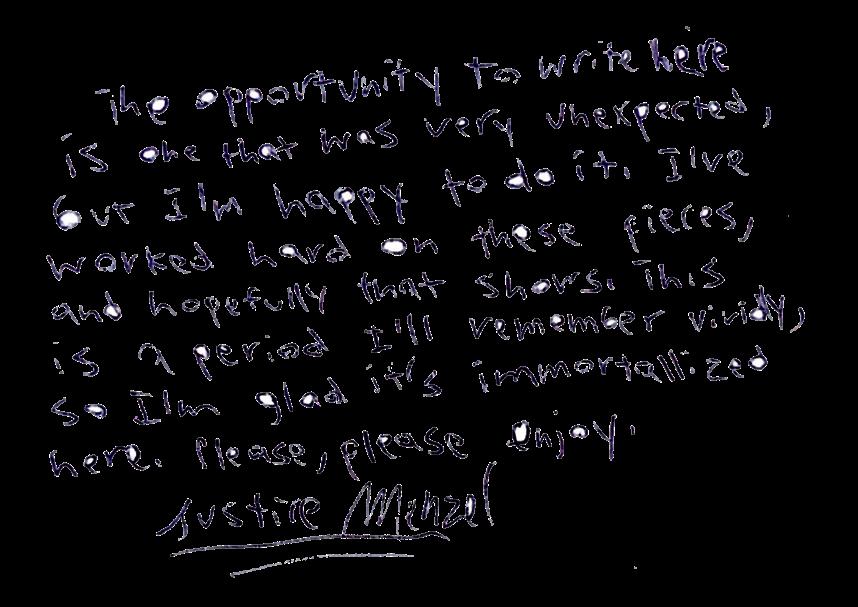 The opportunity to write here
is one that was very unexpected,
but I'm happy to do it. I've
worked hard on these pieces,
and hopefully that shows. This
is a period I'll remember vividly,
so I'm glad it's immortallized
here. Please, please enjoy.
Justice Menzel